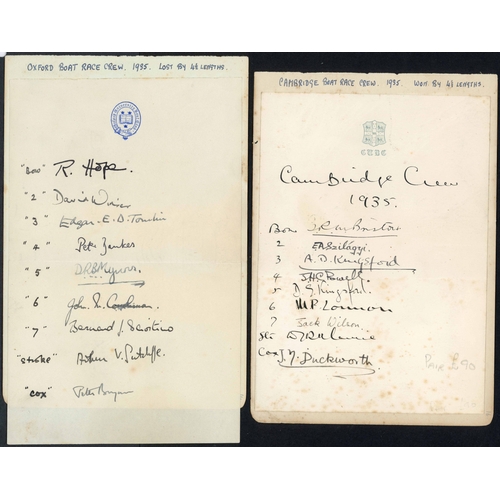 OXFORD BOAT RACE CREW. 1935. LOST BY 4½ LENGTHS.
"Bow" R. Hope.
"2" David Winser
"3" Edgar. E. D. Tomlin
"4"
"5" D.R.B. Mynors.
"6" John S. Couchman.
"7" Bernard J. Sciortino
"Stroke" V. Sutcliffe.
"Cox" Peter Bryan
CAMBRIDGE BOAT RACE CREW. 1935. WON BY 4½ LENGTHS.
C.U.B.C
Cambridge Crew
1935.
Bow
2 E.A. Szilagyi.
3 A. D. Kingsford
4 J.H.C. Powell.
5 D. G. Kingsford.
6 M.P. Lonnon
7 Jack Wilson
Str
Cox J. N. Duckworth.
£90